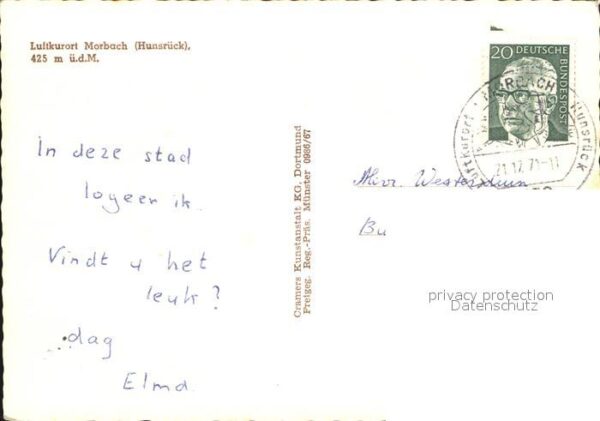 Luftkurort Morbach (Hunsrück),
425 m ü.d.M.
In deze stad
logeer ik.
Vindt u het
leuk?
dag
Elmd
Cramers Kunstanstalt KG, Dortmund
Freigeg. Reg.-Präs. Münster 0986/67
20 DEUTSCHE
BUNDESPOST
MORBACH
Luftkurort
Hunsrück
21.12.71-17
Westerduin
Bu
privacy protection
Datenschutz